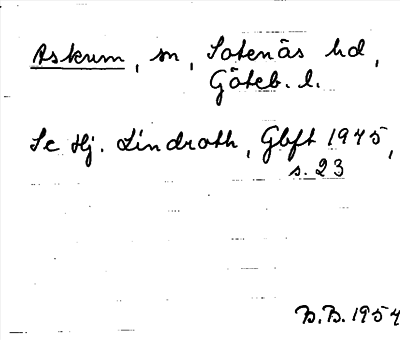 Askum, sn, Sotenäs hd,
Göteb. l.
Se Hj. Lindroth, Gbft 1945,
s. 23
B.B. 1954